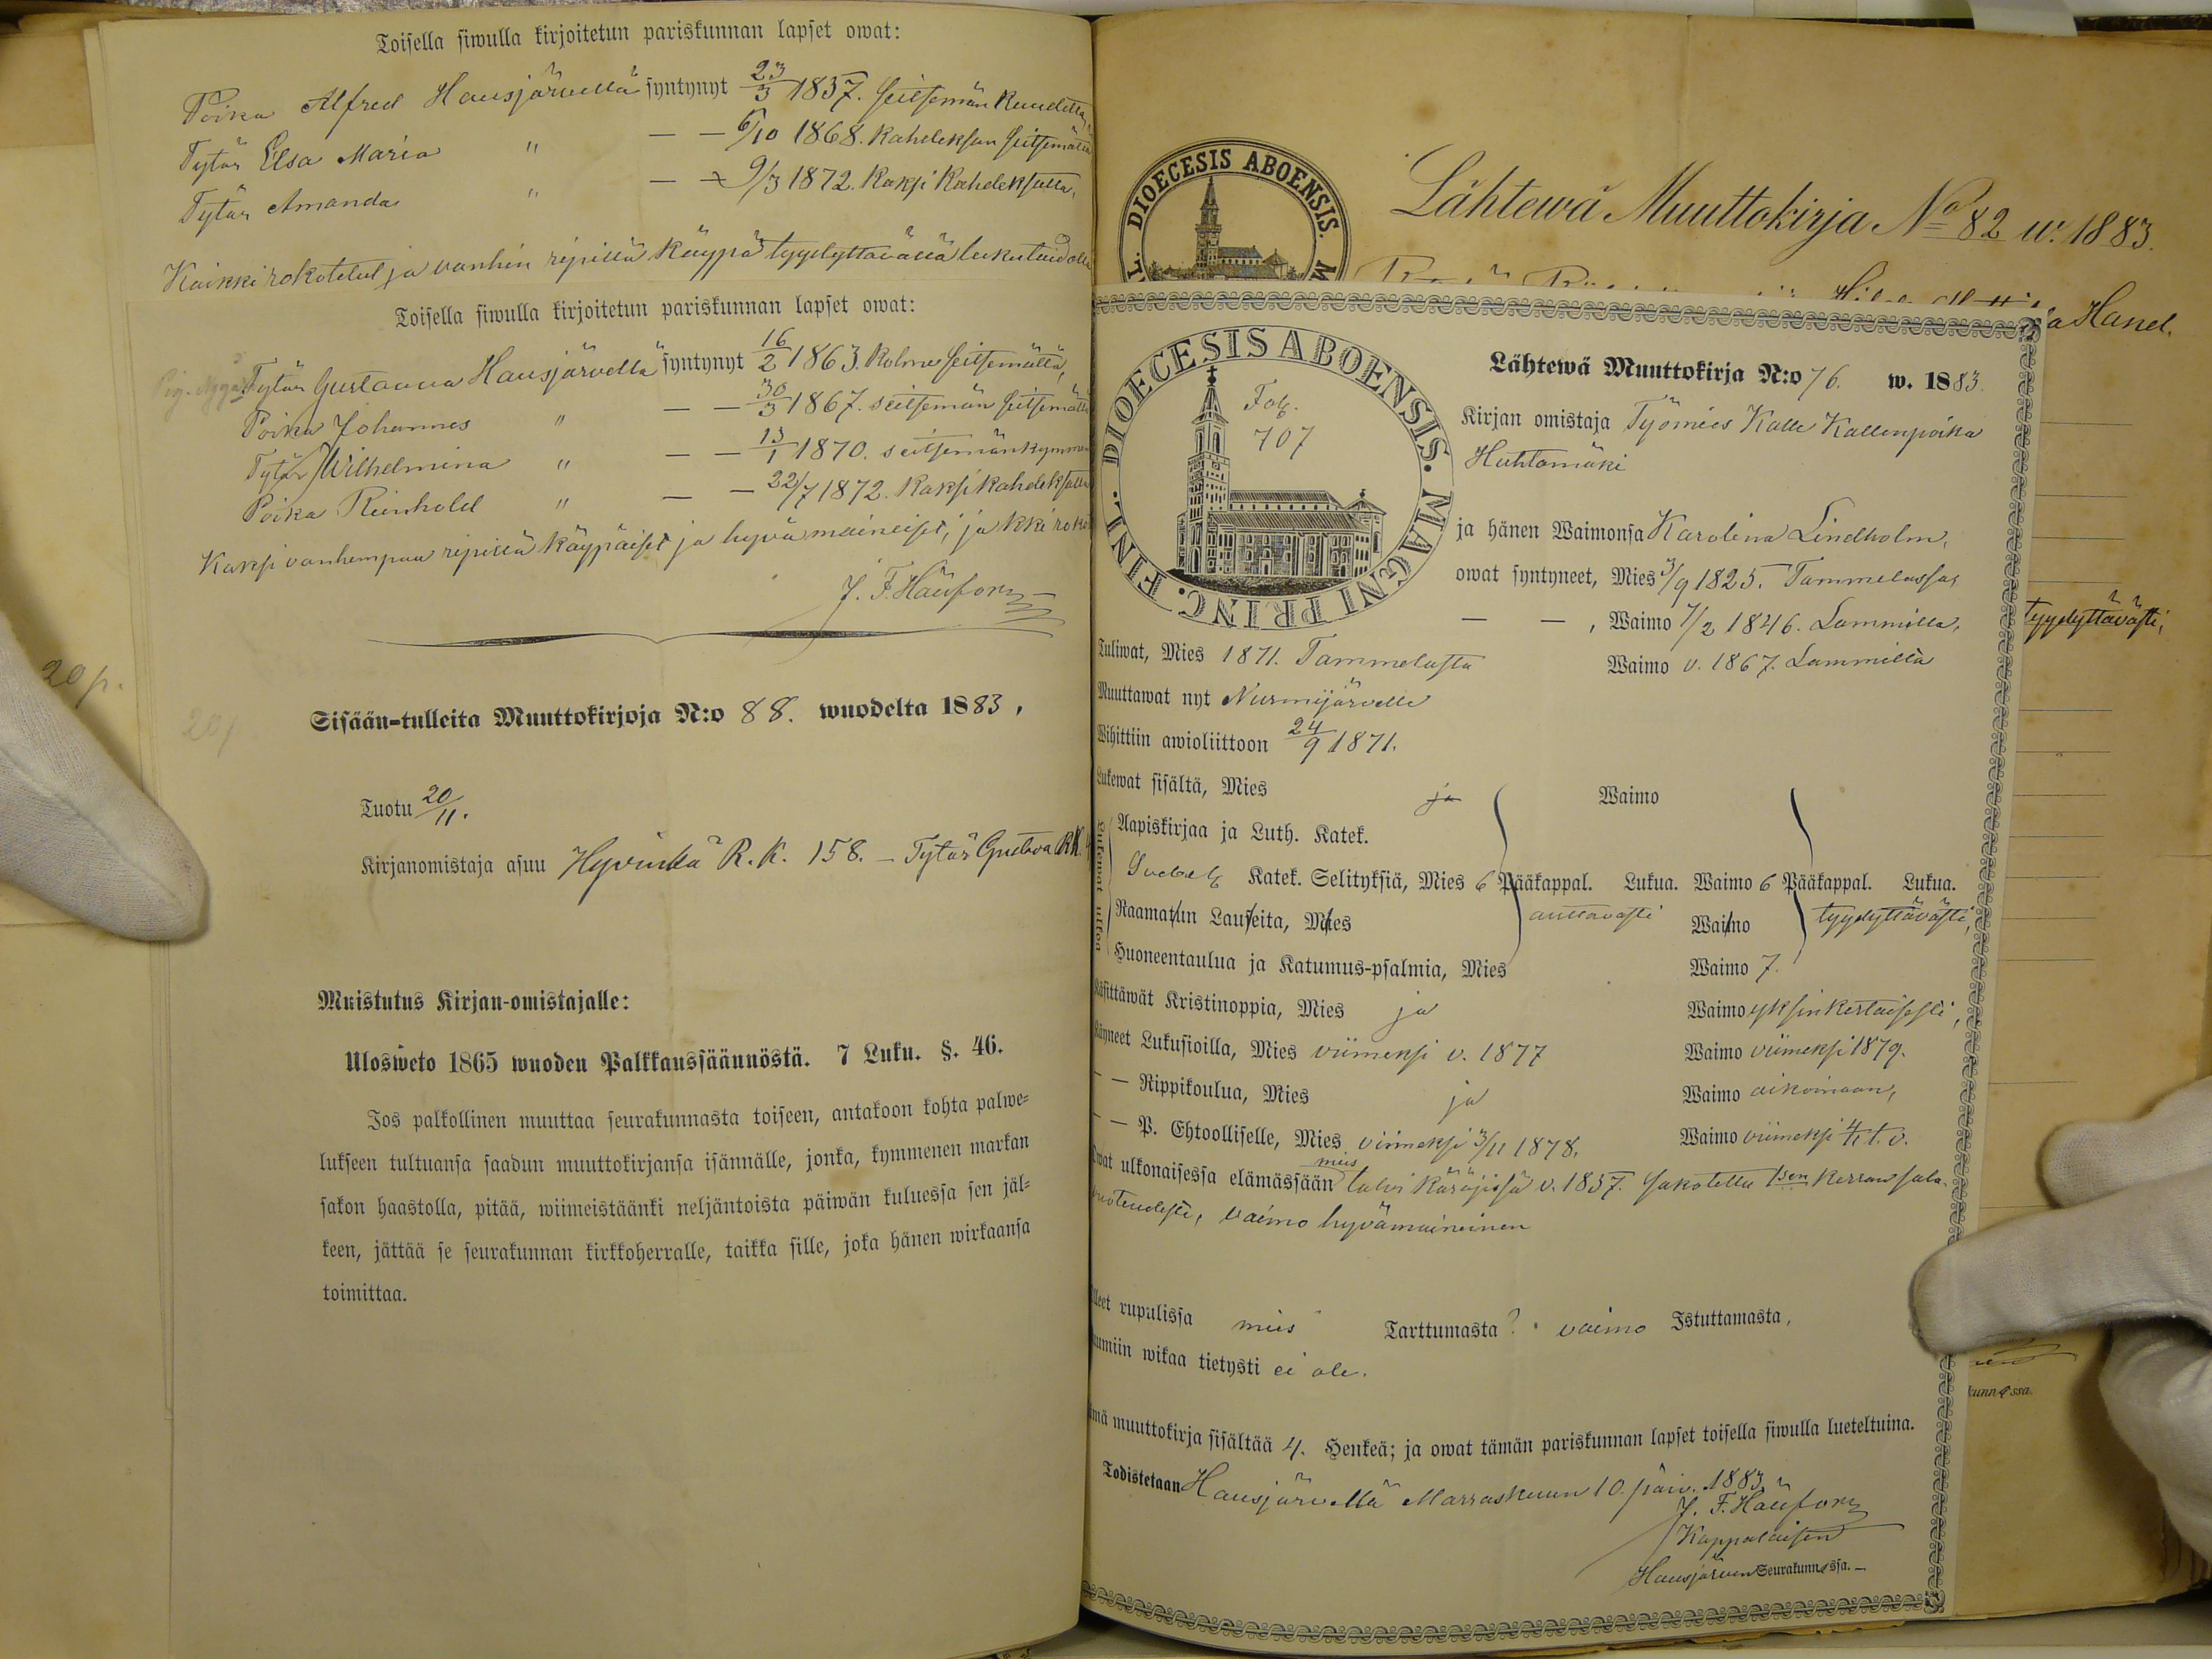 Toisella siwulla kirjoitetun pariskunnan lapset owat:
Poika Alfred Hausjärvellä syntynyt 23/3 1857. seitsemän kuudetta
Tytär Elsa Maria " — — 6/10 1868. kahdeksan seitsemättä
Tytär Amanda " — — 9/3 1872. kaksi kahdeksatta,
Kaikki rokotetut ja vanhin ripillä käypä tyydyttävällä lukutaidolla
Toisella siwulla kirjoitetun pariskunnan lapset owat:
Tytär Gustaava Hausjärvellä syntynyt 16/2 1863. kolme seitsemättä,
Poika Johannes " — — 30/3 1867. seitsemän seitsemättä
Tytär Wilhelmina " — — 13/1 1870. seitsemänkymmen
Poika Reinhold " — — 22/7 1872. kaksi kahdeksatta
Kaksi vanhempaa ripillä käypäiset ja hyvämaineiset, ja kki roko
J. F. Häufors
20 p.
Sisään-tulleita Muuttokirjoja N:o 88. wuodelta 1883,
Tuotu 20/11.
Kirjanomistaja asuu Hyvinkä R. K. 158. — Tytär Gustava RK.
Muistutus Kirjan-omistajalle:
Ulosweto 1865 wuoden Palkkaussäännöstä. 7 Luku. §. 46.
Jos palkollinen muuttaa seurakunnasta toiseen, antakoon kohta palwe-
lukseen tultuansa saadun muuttokirjansa isännälle, jonka, kymmenen markan
sakon haastolla, pitää, wiimeistäänki neljäntoista päiwän kuluessa sen jäl-
keen, jättää se seurakunnan kirkkoherralle, taikka sille, joka hänen wirkaansa
toimittaa.
DIOECESIS ABOENSIS. M
Lähtewä Muuttokirja No 82 w. 1883.
a Hand.
tyydyttävästi,
kunnassa.
DIOECESIS ABOENSIS. MAGNI PRINC. FINL.
Fol.
707
Lähtewä Muuttokirja N:o 76. w. 1883.
Kirjan omistaja Työmies Kalle Kallenpoika
Huhtamäki
ja hänen Waimonsa Karolina Lindholm,
owat syntyneet, Mies 3/9 1825. Tammelassa,
— — , Waimo 7/2 1846. Lammilla,
Tuliwat, Mies 1871. Tammelasta Waimo v. 1867. Lammilta
Muuttawat nyt Nurmijärvelle
Wihittiin awioliittoon 24/9 1871.
Lukewat sisältä, Mies ja Waimo
Lukewat ulkoa
Aapiskirjaa ja Luth. Katek.
Svebel. Katek. Selityksiä, Mies 6 Pääkappal. Lukua. Waimo 6 Pääkappal. Lukua.
Raamatun Lauseita, Mies auttavasti Waimo tyydyttävästi,
Huoneentaulua ja Katumus-psalmia, Mies Waimo 7.
Käsittäwät Kristinoppia, Mies ja Waimo yksinkertaisesti,
Käyneet Lukusioilla, Mies viimeksi v. 1877 Waimo viimeksi 1879.
— — Rippikoulua, Mies ja Waimo aikoinaan,
— — P. Ehtoolliselle, Mies viimeksi 3/11 1878. Waimo viimeksi 4/11 t. v.
Owat ulkonaisessa elämässään mies talvi käräjissä v. 1857. sakotettu 1sen kerran sala-
vuoteudesta, vaimo hyvämaineinen
lleet rupulissa mies Tarttumasta? vaimo Istuttamasta,
umiin wikaa tietysti ei ole.
ämä muuttokirja sisältää 4. Henkeä; ja owat tämän pariskunnan lapset toisella siwulla lueteltuina.
Todistetaan Hausjärvellä Marraskuun 10. päiv. 1883.
J. F. Häufors
Kappalaisen
Hausjärven Seurakunnassa. —